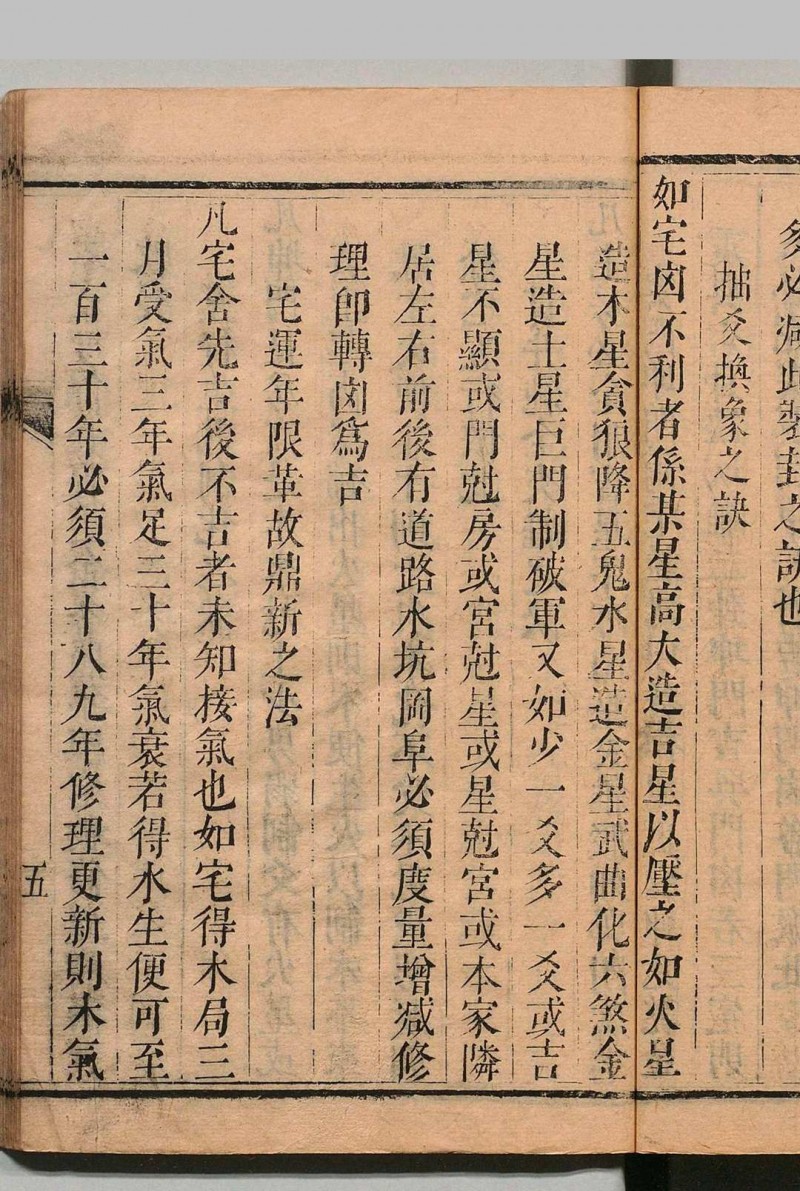 多必減此裝卦之訣也
抽爻換象之訣
如宅囪不利者係某星高大造吉星以壓之如火星
造木星貪狼降五鬼水星造金星武曲化六煞金
星造土星巨門制破軍又如少一爻多一爻或吉
星不顯或門尅房或宮尅星或星尅宮或本家隣
居左右前後有道路水坑岡阜必須度量增减修
理卽轉囪爲吉
宅運年限革故鼎新之法
凡宅舍先吉後不吉者未知接氣也如宅得木局三
月受氣三年氣足三十年氣衰若得水生便可至
一百三十年必須二十八九年修理更新則木氣
五